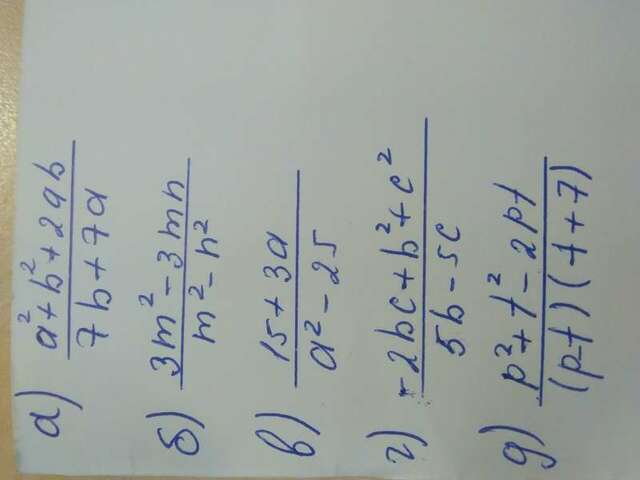 а) a²+b²+2ab
7b+7a
б) 3m²-3mn
m²-n²
в) 15+3a
a²-25
г) -2bc+b²+c²
5b-5c
д) p²+t²-2pt
(p-t)(t+7)